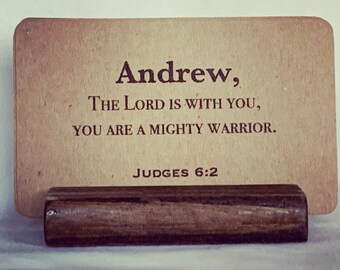 Andrew,
The Lord is with you,
you are a mighty warrior.
Judges 6:2